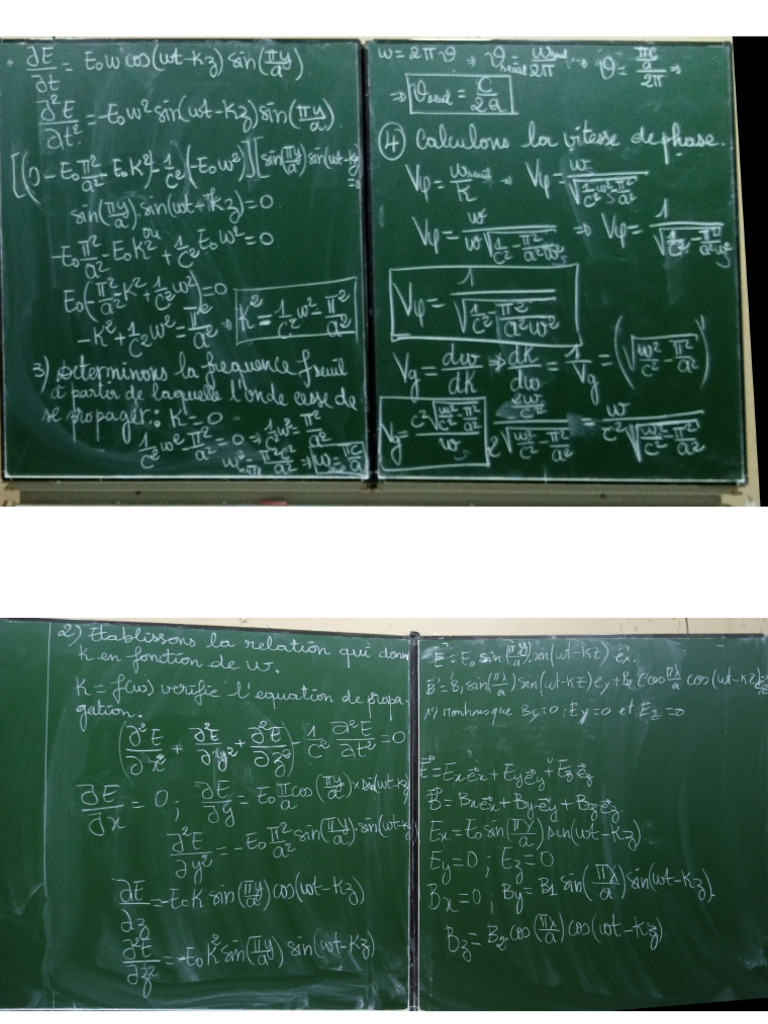 ∂E/∂t = E₀w cos(wt-Kz) sin(πy/a)
∂²E/∂t² = -E₀w² sin(wt-Kz) sin(πy/a)
[(0 - E₀π²/a² - E₀K²) - 1/c²(-E₀w²)][sin(πy/a) sin(wt-Kz)]=0
sin(πy/a) . sin(wt+Kz) = 0
ou
-E₀π²/a² - E₀K² + 1/c² E₀w² = 0
E₀(-π²/a² - K² + 1/c² w²) = 0
-K² + 1/c² w² = π²/a² ⇒ K² = 1/c² w² - π²/a²
3) Determinons la frequence fseuil
à partir de laquelle l'onde cesse de
se propager : K = 0
1/c² w² - π²/a² = 0 ⇒ 1/c² w² = π²/a²
w² = π²c²/a² ⇒ w = πc/a
w = 2πν ⇒ νseuil = wseuil/2π ν = (πc/a)/2π ⇒
⇒ νseuil = c/2a
4) Calculons la vitesse de phase.
Vφ = wseuil/K ⇒ Vφ = w/√(1/c² w² - π²/a²)
Vφ = w/(w√(1/c² - π²/a²w²)) ⇒ Vφ = 1/√(1/c² - π²/a²w²)
Vφ = 1/√(1/c² - π²/a²w²)
Vg = dw/dk ⇒ dk/dw = 1/Vg = (√(w²/c² - π²/a²))'
Vg = c²√(w²/c² - π²/a²)/w 2w/c²/2√(w²/c² - π²/a²) = w/(c²√(w²/c² - π²/a²))
2) Etablissons la relation qui donn
K en fonction de w.
K = f(w) verifie l'equation de propa-
gation.
(∂²E/∂x² + ∂²E/∂y² + ∂²E/∂z²) - 1/c² ∂²E/∂t² = 0
∂E/∂x = 0 ; ∂E/∂y = E₀ π/a cos(πy/a) × sin(wt-Kz)
∂²E/∂y² = -E₀ π²/a² sin(πy/a) . sin(wt-Kz)
∂E/∂z = -E₀K sin(πy/a) cos(wt-Kz)
∂²E/∂z² = -E₀K² sin(πy/a) sin(wt-Kz)
E = E₀ sin(πy/a) . sin(wt-Kz) ex.
B = B₁ sin(πx/a) sin(wt-Kz) ey + B₂ cos πx/a cos(wt-Kz) ez
1) montrons que Bx=0 ; Ey=0 et Ez=0
E = Ex ex + Ey ey + Ez ez
B = Bx ex + By ey + Bz ez
Ex = E₀ sin(πy/a) sin(wt-Kz)
Ey = 0 ; Ez = 0
Bx = 0 ; By = B₁ sin(πx/a) sin(wt-Kz)
Bz = B₂ cos(πx/a) cos(wt-Kz)